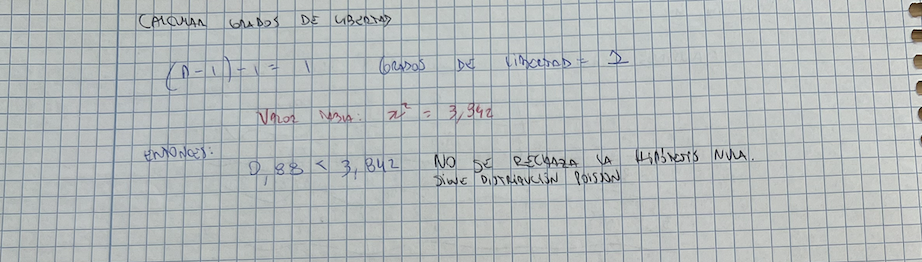 CALCULAR GRADOS DE LIBERTAD
(n-1)-1 = 1 GRADOS DE LIBERTAD = 1
VALOR TABLA: x² = 3,842
ENTONCES:
0,88 < 3,842 NO SE RECHAZA LA HIPÓTESIS NULA.
SIGUE DISTRIBUCIÓN POISSON